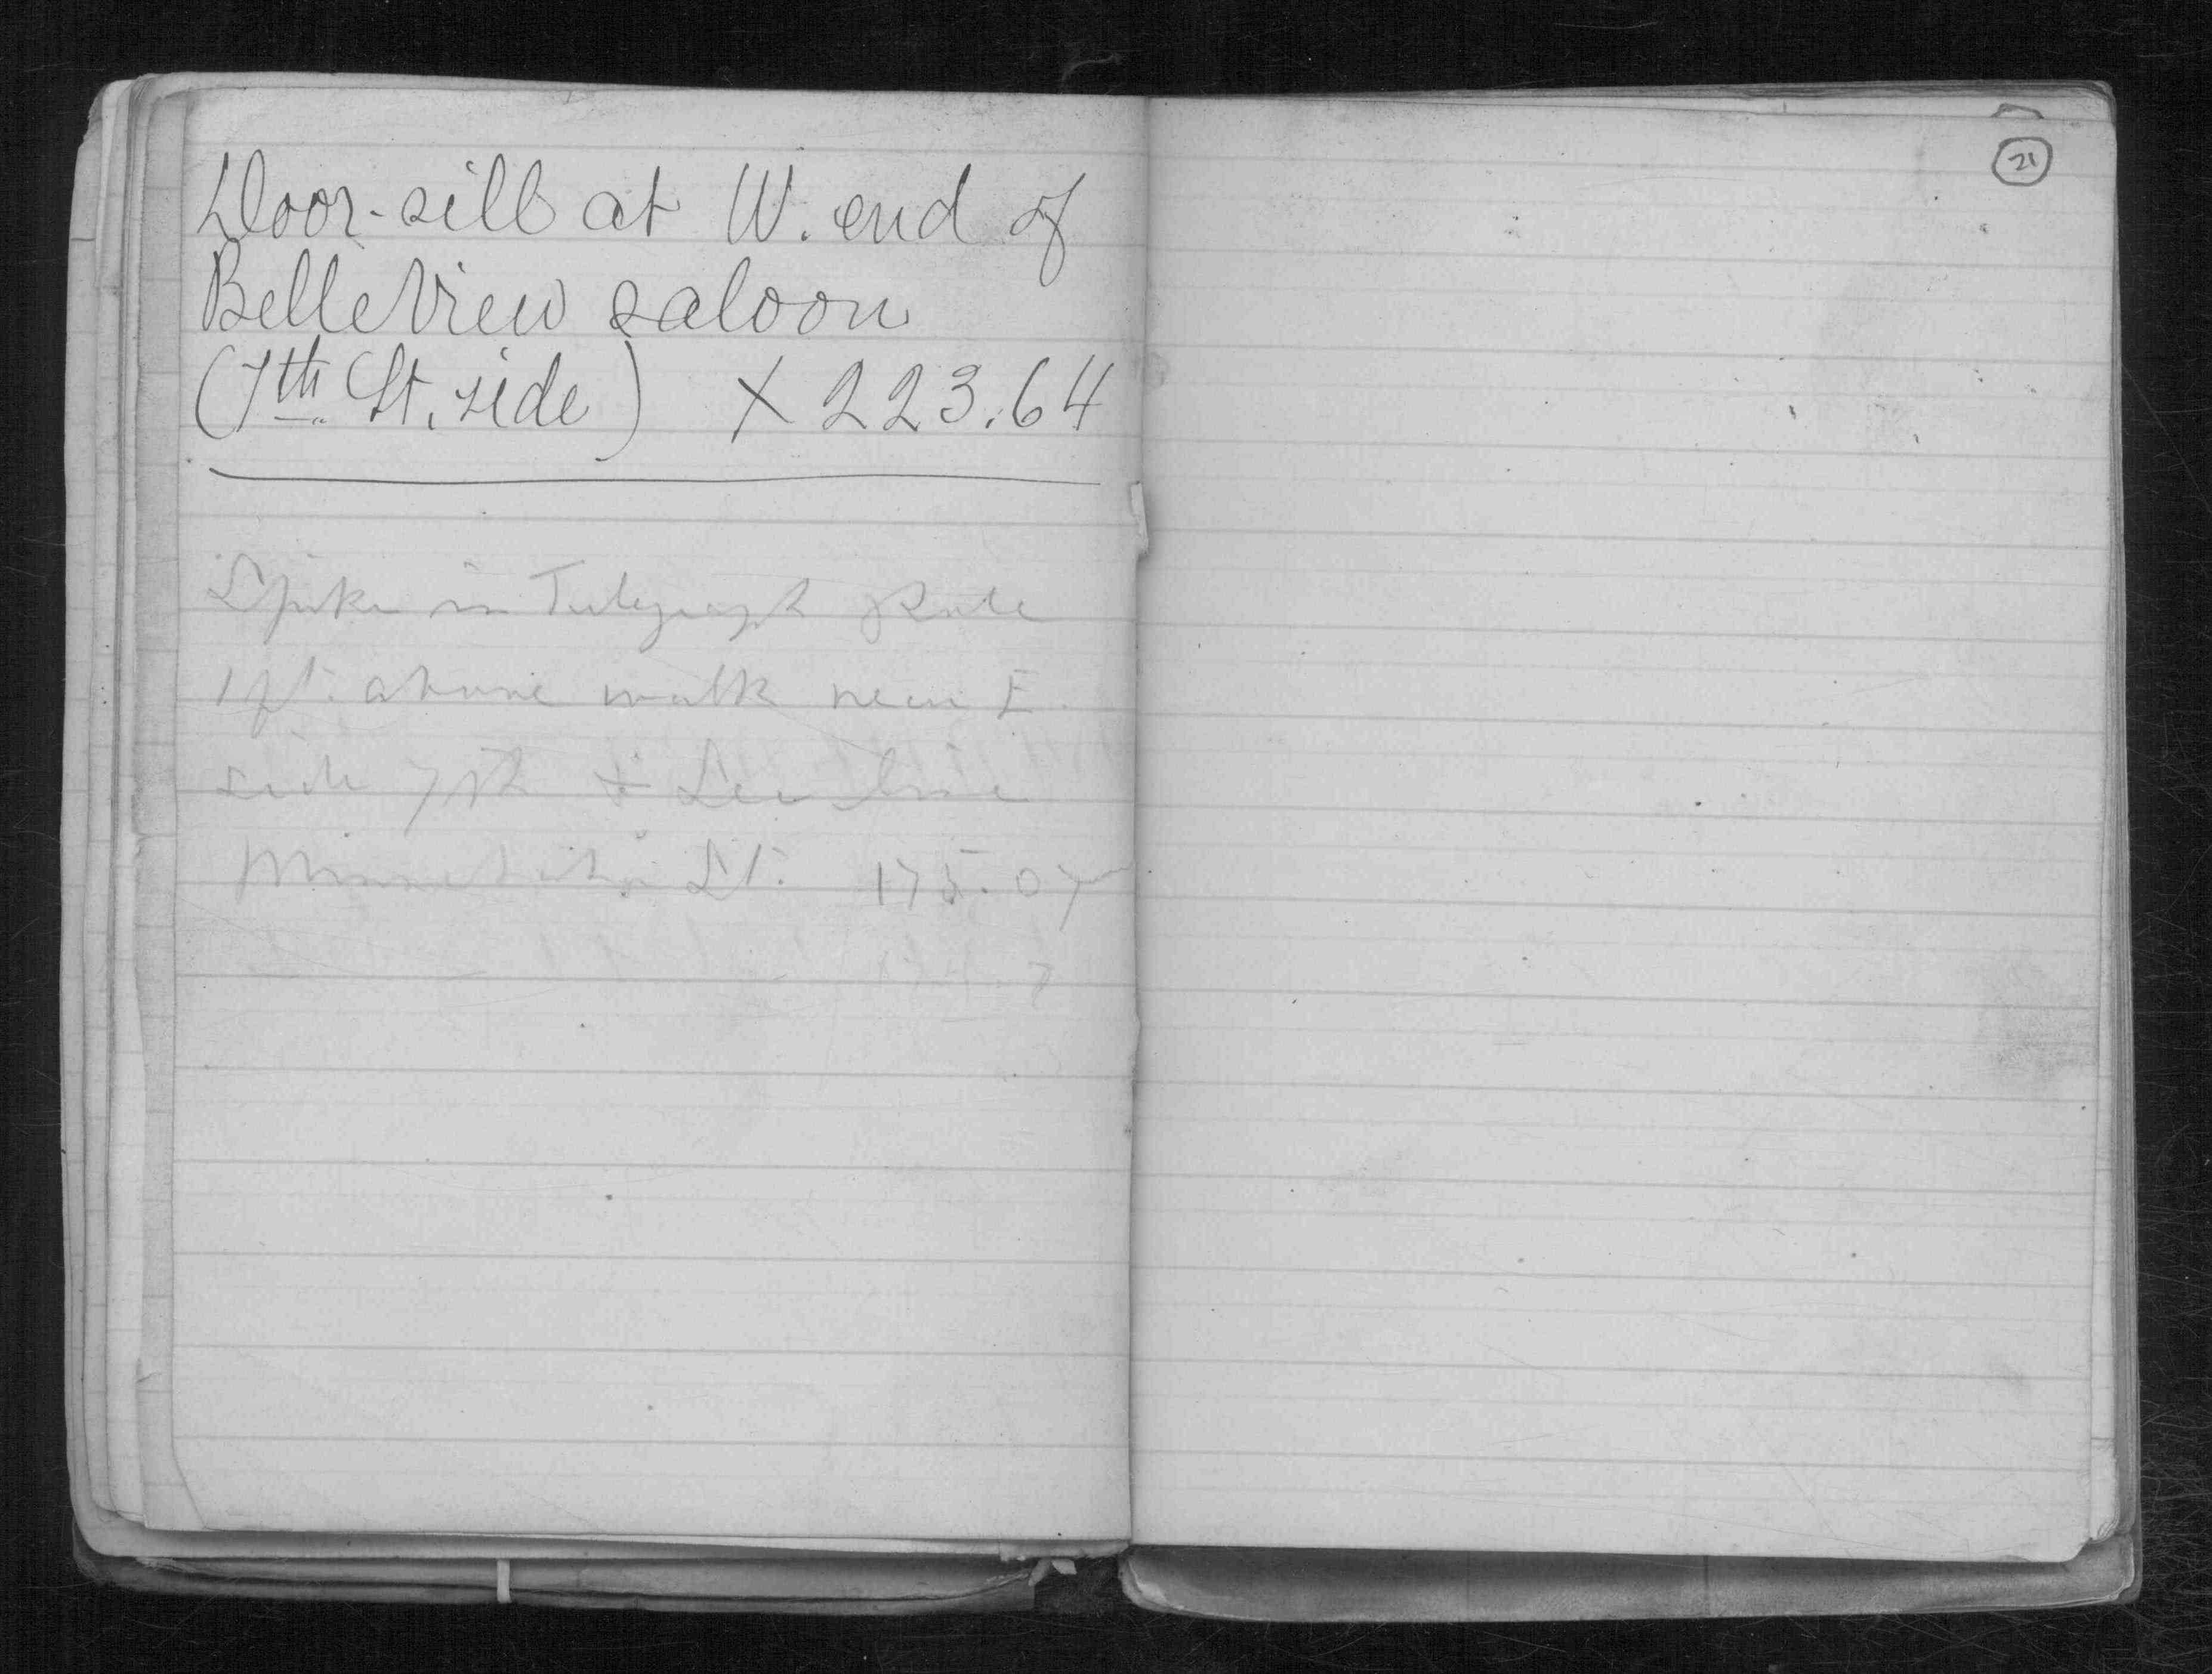 Door-sill at W. end of
Belle View saloon
(7th St. side) X 223.64
Spike in Telegraph Pole
1 ft. above walk near E.
side 7th & line
Minnetaha St. 175.07
21